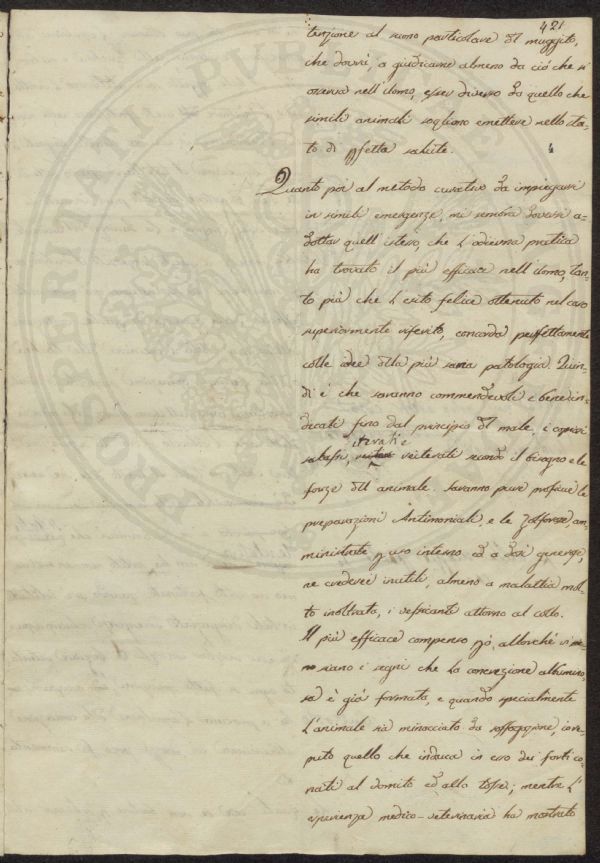 421
tenzione al suono particolare del muggito,
che dovrà, a giudicarne almeno da ciò che si
osserva nell'Uomo, esser diverso da quello che
simili animali sogliono emettere nello sta-
to di pfetta salute.
Quanto poi al metodo curativo da impiegarsi
in simili emergenze, mi sembra doversi a-
dottar quell'istesso, che l'odierna pratica
ha trovato il più efficace nell'Uomo, tan-
to più che l'esito felice ottenuto nel caso
superiormente riferito, concorda perfettamente
colle idee della più sana patologia. Quin-
di è che saranno commendevoli e bene in-
dicati fino dal principio del male, i copiosi
salassi, reiterati secondo il bisogno e le
forze dell'animale. Saranno pure proficue le
preparazioni Antimoniali, e le Zolforose, am-
ministrate p uso interno ed a dosi generose,
ne crederei inutili, almeno a malattia mol-
to inoltrata, i vescicanti attorno al collo.
Il più efficace compenso pò, allorchè vi
siano i segni che la concrezione albumino-
sa è già formata, e quando specialmente
l'animale sia minacciato da soffogazione, io re-
puto quello che induca in esso dei forti co-
nati al vomito ed alla tosse; mentre l'
esperienza medico-veterinaria ha mostrato
PROSPERITATI